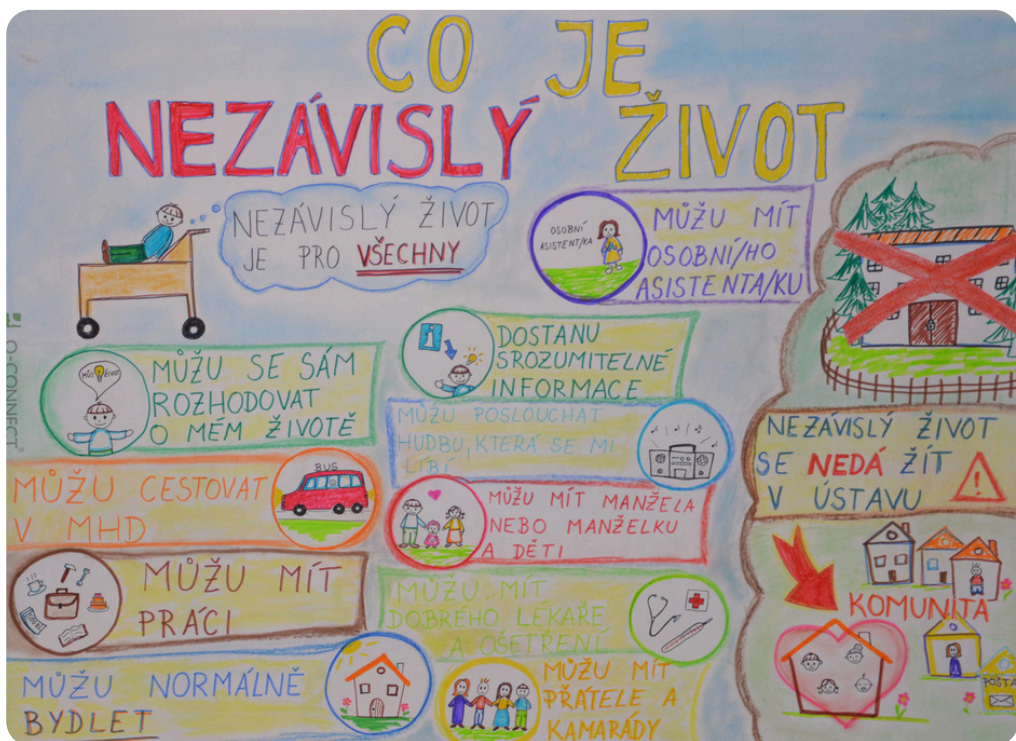 CO JE
NEZÁVISLÝ ŽIVOT
NEZÁVISLÝ ŽIVOT
JE PRO VŠECHNY
OSOBNÍ
ASISTENT/KA
MŮŽU MÍT
OSOBNÍ/HO
ASISTENTA/KU
MŮJ ŽIVOT
MŮŽU SE SÁM
ROZHODOVAT
O MÉM ŽIVOTĚ
i
DOSTANU
SROZUMITELNÉ
INFORMACE
MŮŽU POSLOUCHAT
HUDBU, KTERÁ SE MI
LÍBÍ
MŮŽU CESTOVAT
V MHD
BUS
MŮŽU MÍT MANŽELA
NEBO MANŽELKU
A DĚTI
MŮŽU MÍT
PRÁCI
MŮŽU MÍT
DOBRÉHO LÉKAŘE
A OŠETŘENÍ
MŮŽU NORMÁLNĚ
BYDLET
MŮŽU MÍT
PŘÁTELE A
KAMARÁDY
NEZÁVISLÝ ŽIVOT
SE NEDÁ ŽÍT
V ÚSTAVU
!
KOMUNITA
POŠTA
Q-CONNECT